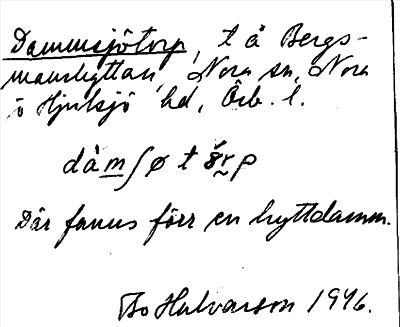 Dammsjötorp, t å Bergs-
manshyttan, Nora sn, Nora
o Hjulsjö hd, Örb. l.
dàm̲ʃø t ö̆r̰p
Där fanns förr en hyttdamm.
Bo Halvarson 1946.